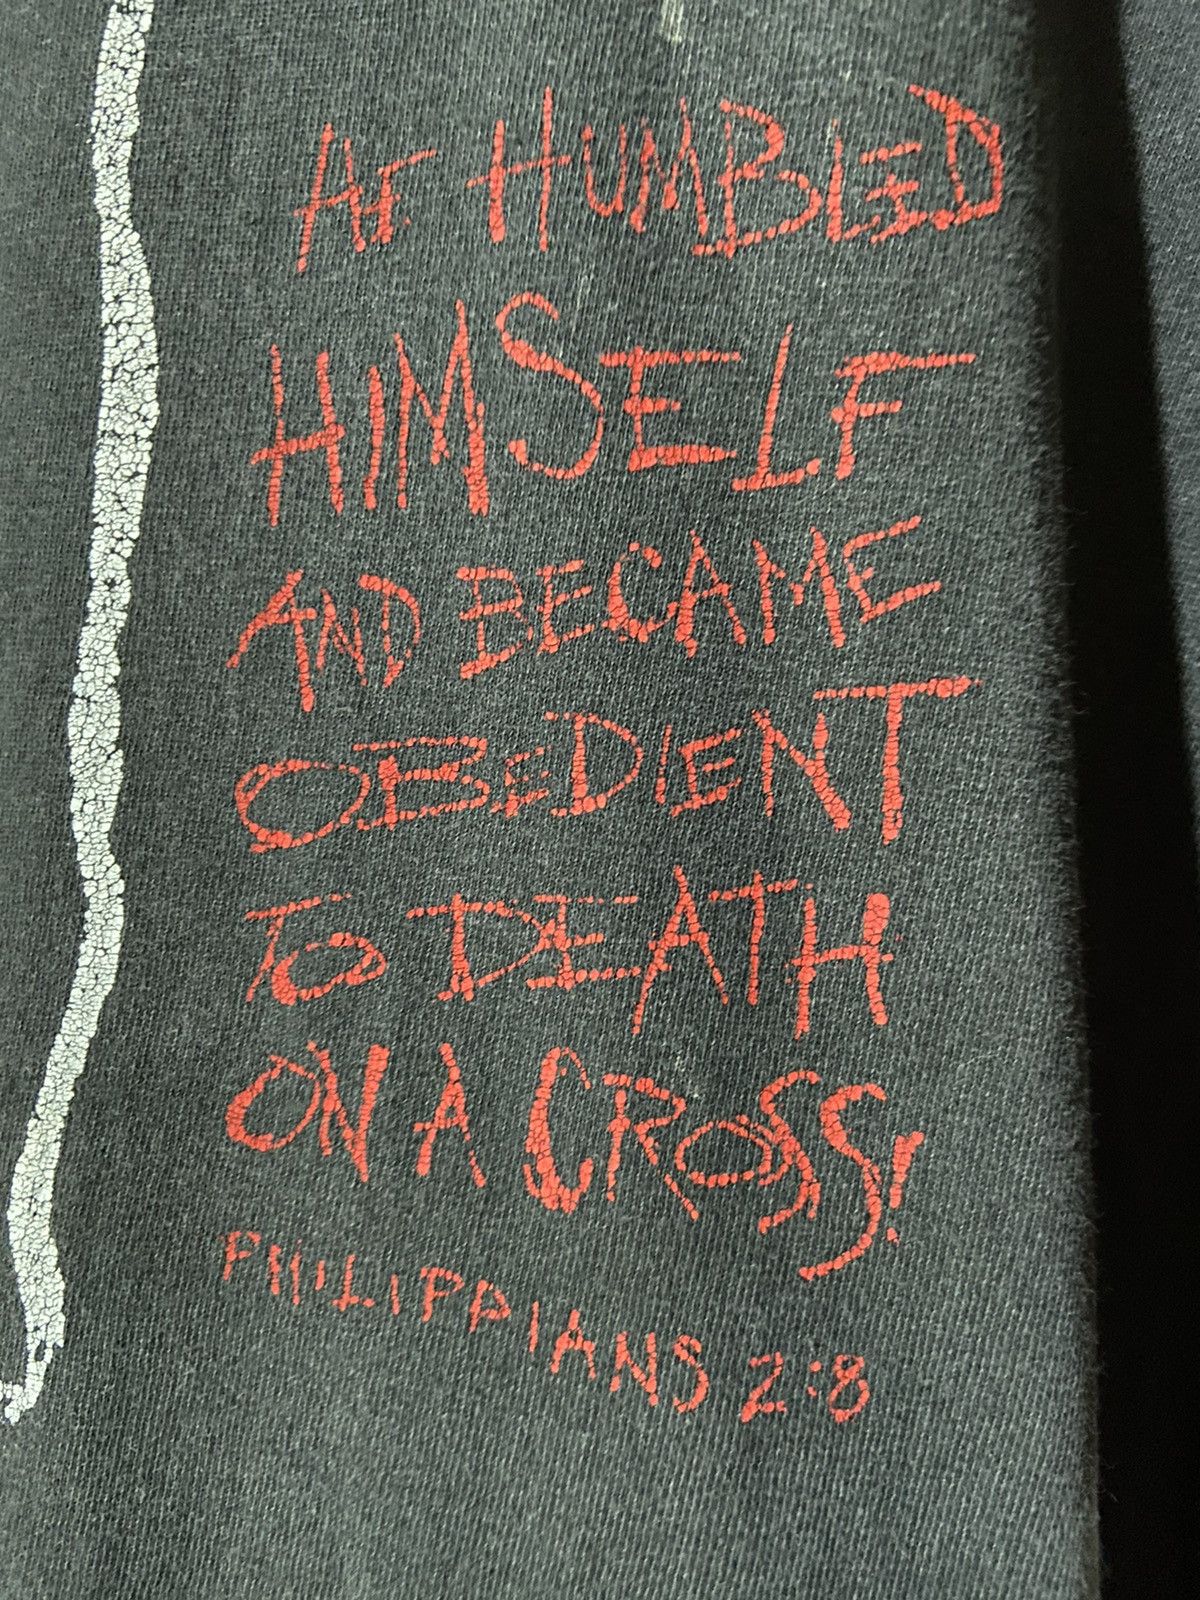 HE HUMBLED
HIMSELF
AND BECAME
OBEDIENT
TO DEATH
ON A CROSS!
PHILIPPIANS 2:8